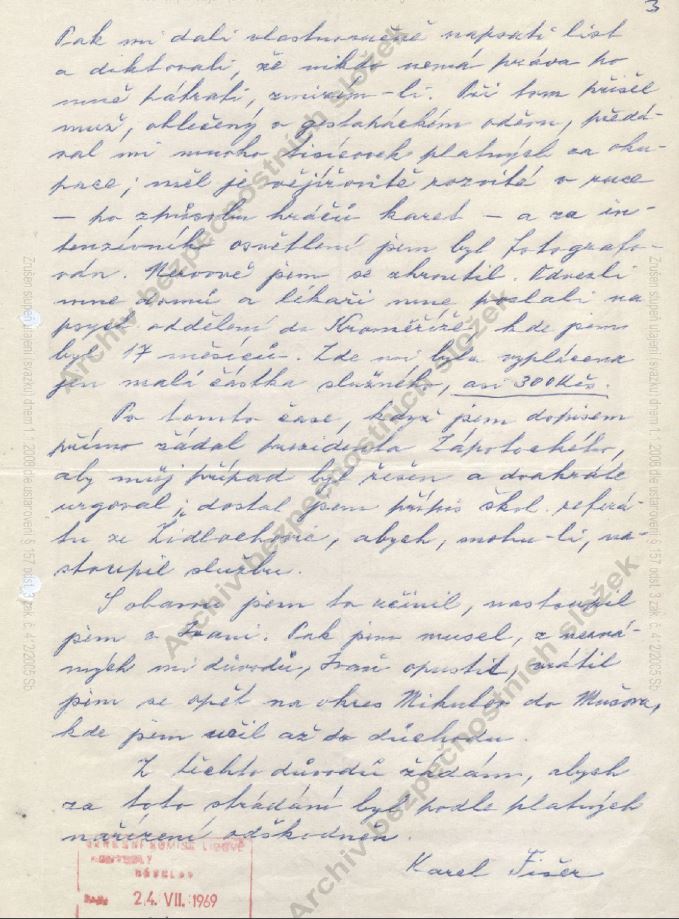 3
Pak mi dali vlastnoručně napsati list
a diktovali, že nikdo nemá práva po
mně pátrati, zmizím-li. Při tom přišel
muž, oblečený v gestapáckém oděvu, předá-
val mi mnoho tisícovek platných za oku-
pace; měl je vějířovitě rozvité v ruce
– po způsobu hráčů karet – a za in-
tenzivního osvětlení jsem byl fotografo-
ván. Nervově jsem se zhroutil. Odvezli
mne domů a lékaři mne poslali na
psych. oddělení do Kroměříže, kde jsem
byl 17 měsíců. Zde mi byla vyplácena
jen malá částka služného, asi 300 Kčs.
Po tomto čase, když jsem dopisem
přímo žádal presidenta Zápotockého,
aby můj případ byl řešen a dvakráte
urgoval; dostal jsem přípis škol. referá-
tu ze Židlochovic, abych, mohu-li, na-
stoupil službu.
S obavou jsem to učinil, nastoupil
jsem v Ivani. Pak jsem musel, z nezná-
mých mi důvodů, Ivaň opustit, vrátil
jsem se opět na okres Mikulov do Mušova,
kde jsem učil až do důchodu.
Z těchto důvodů žádám, abych
za toto strádání byl podle platných
nařízení odškodněn.
Karel Fišer
OKRESNÍ KOMISE LIDOVÉ
KONTROLY
BŘECLAV
24. VII. 1969
Archiv bezpečnostních složek
Archiv bezpečnostních složek
Archiv bezpečnostních složek
Archiv bezpečnostních složek